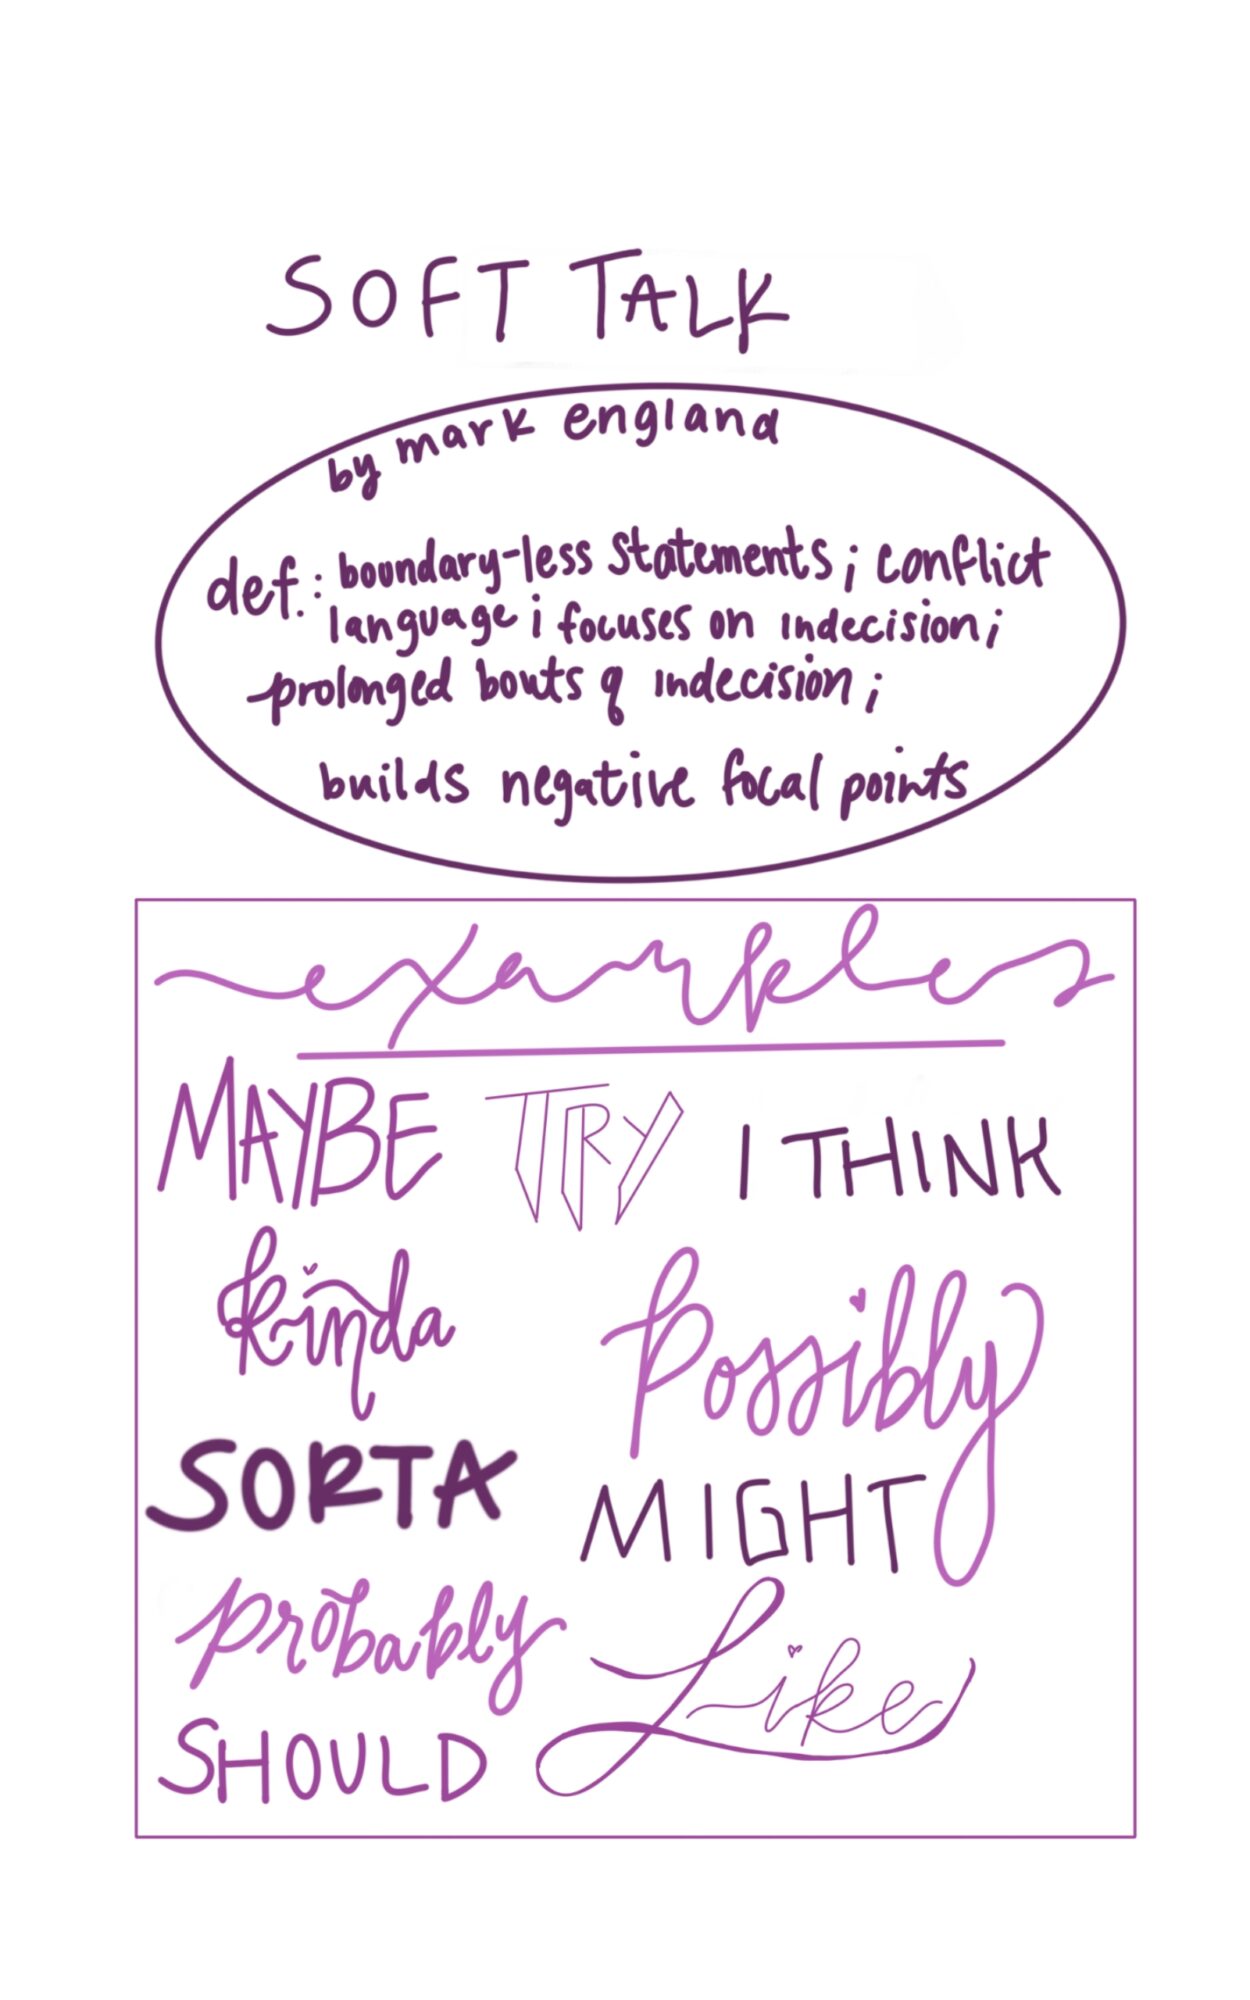 SOFT TALK
by mark england
def.: boundary-less statements; conflict
language; focuses on indecision;
prolonged bouts of indecision;
builds negative focal points
examples
MAYBE TRY I THINK
kinda possibly
SORTA MIGHT
probably Like
SHOULD